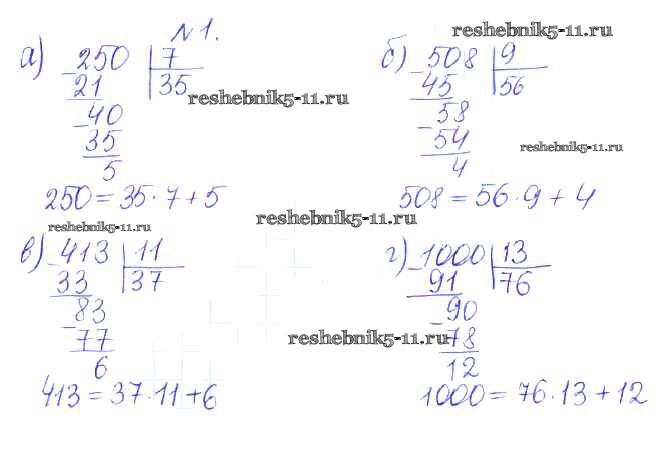 №1.
reshebnik5-11.ru
а) 250 | 7
- 21 | 35
reshebnik5-11.ru
- 40
35
5
250 = 35 · 7 + 5
б) 508 | 9
- 45 | 56
58
- 54
reshebnik5-11.ru
4
508 = 56 · 9 + 4
reshebnik5-11.ru
reshebnik5-11.ru
в) 413 | 11
- 33 | 37
83
- 77
6
413 = 37 · 11 + 6
г) 1000 | 13
- 91 | 76
90
- 78
reshebnik5-11.ru
12
1000 = 76 · 13 + 12